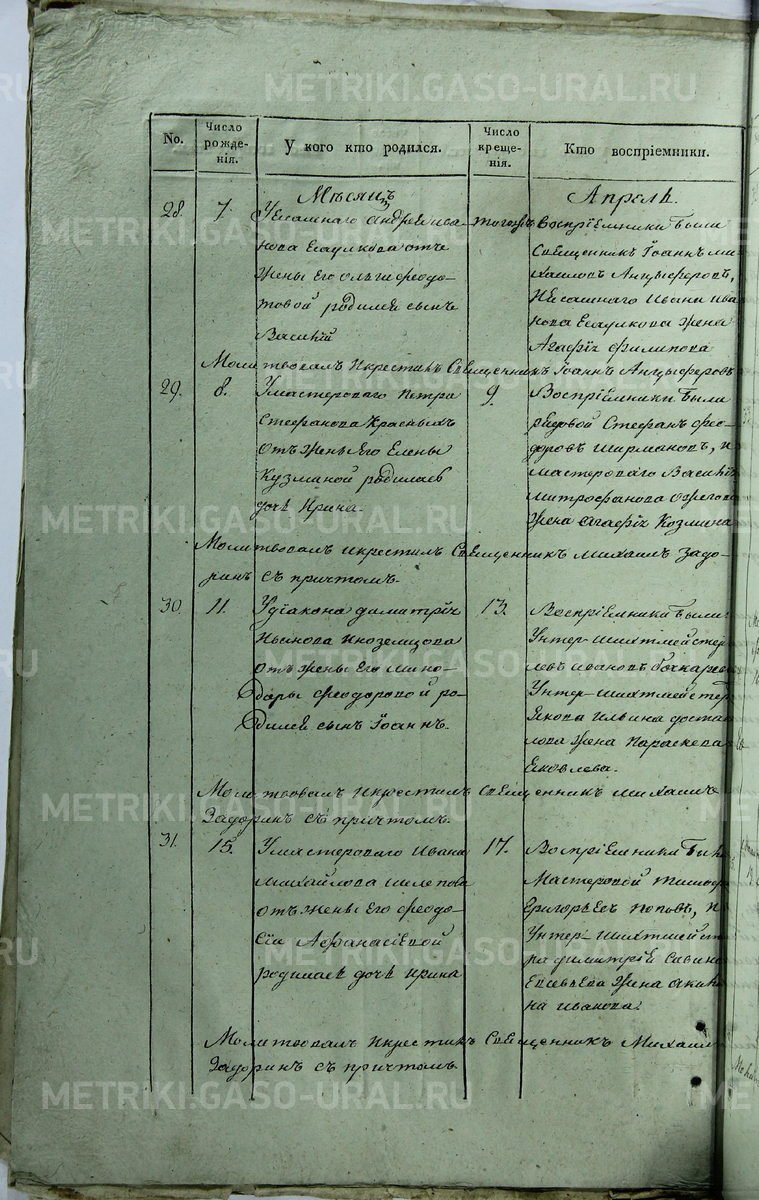 METRIKI.GASO-URAL.RU
No.
Число рожденія.
У кого кто родился.
Число крещенія.
Кто воспріемники.
Мѣсяцъ
Апрель
28.
7.
Уписашнаго Андрея Ива
нова Есаулкова отъ
жены Его Ольги Ѳеодо-
товой родился сынъ
Василій
тогожъ
Воспріемники были
Священникъ Іоаннъ Ми-
хаиловъ Анцыферовъ,
Писашнаго Ивана Ива
нова Есаулкова жена
Агафія Филипова
Молитвовалъ Икрестилъ Священникъ Іоаннъ Анцыферовъ
29.
8.
Умастероваго Петра
Стефанова Красныхъ
Отъ жены Его Елены
Кузминой родилась
дочь Ирина.
9.
Воспріймники были
рядовой Стефанъ Ѳео-
доровъ Ширмановъ, и
мастероваго Василія
Митрофанова Ожегова
жена Агафія Козмина
Молитвовалъ икрестилъ Священникъ Михаилъ Задо-
ринъ съ причтомъ.
30.
11.
Удіакона Димитрія
Иванова Иноземцова
отъ жены Его Мино-
доры Ѳеодоровой ро-
дился сынъ Іоаннъ.
13.
Воспріемники были
Унтер-шихтмейстер
Левъ Ивановъ
Унтер-шихтмейстер
Якова Ильина
жена Параскева
Яковлева.
Молитвовалъ икрестилъ священникъ Михаилъ
Задоринъ съ причтомъ.
31.
15.
Умастероваго Ивана
Михайлова Шлепова
отъ жены Его Ѳеодо-
сіи Афанасіевой
родилась дочь Ирина
17.
Воспріемники бы
Мастеровой
Григорьевъ Поповъ, и
Унтер-шихтмейст
ра Димитрія Савина
Евсевьева жена Акили
на Иванова.
Молитвовалъ Икрестилъ священникъ Михаилъ
Задоринъ съ причтомъ.